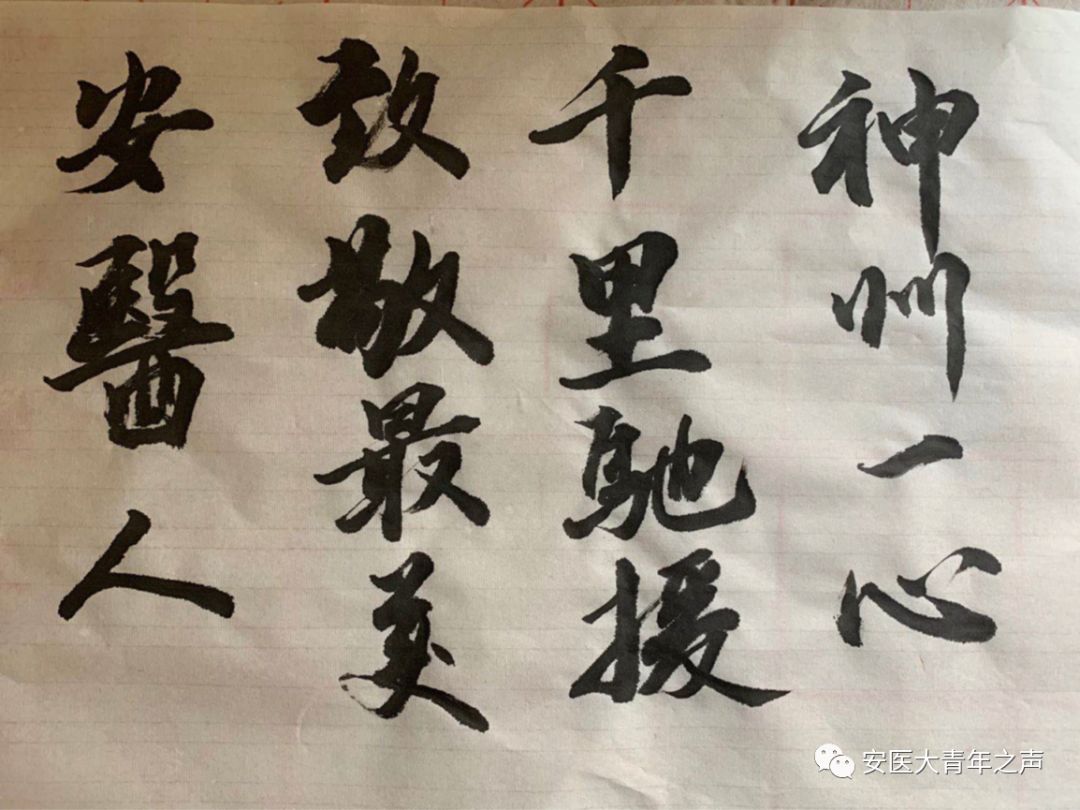 神州一心
千里馳援
致敬最美
安醫人
安医大青年之声